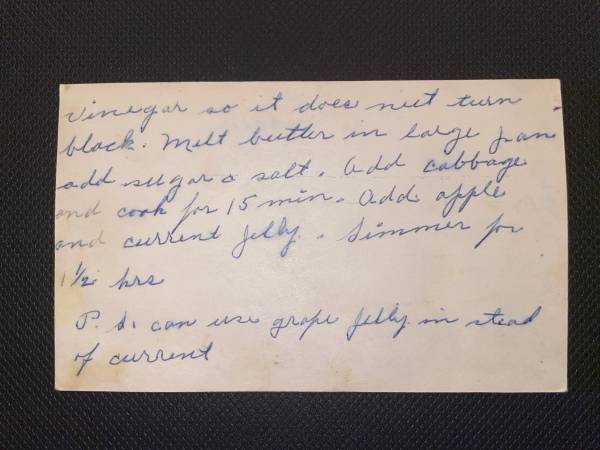 vinegar so it does not turn
black. Melt butter in large pan
add sugar & salt. Add cabbage
and cook for 15 min. Add apple
and current jelly. Simmer for
1 1/2 hrs
P.S. can use grape jelly in stead
of current